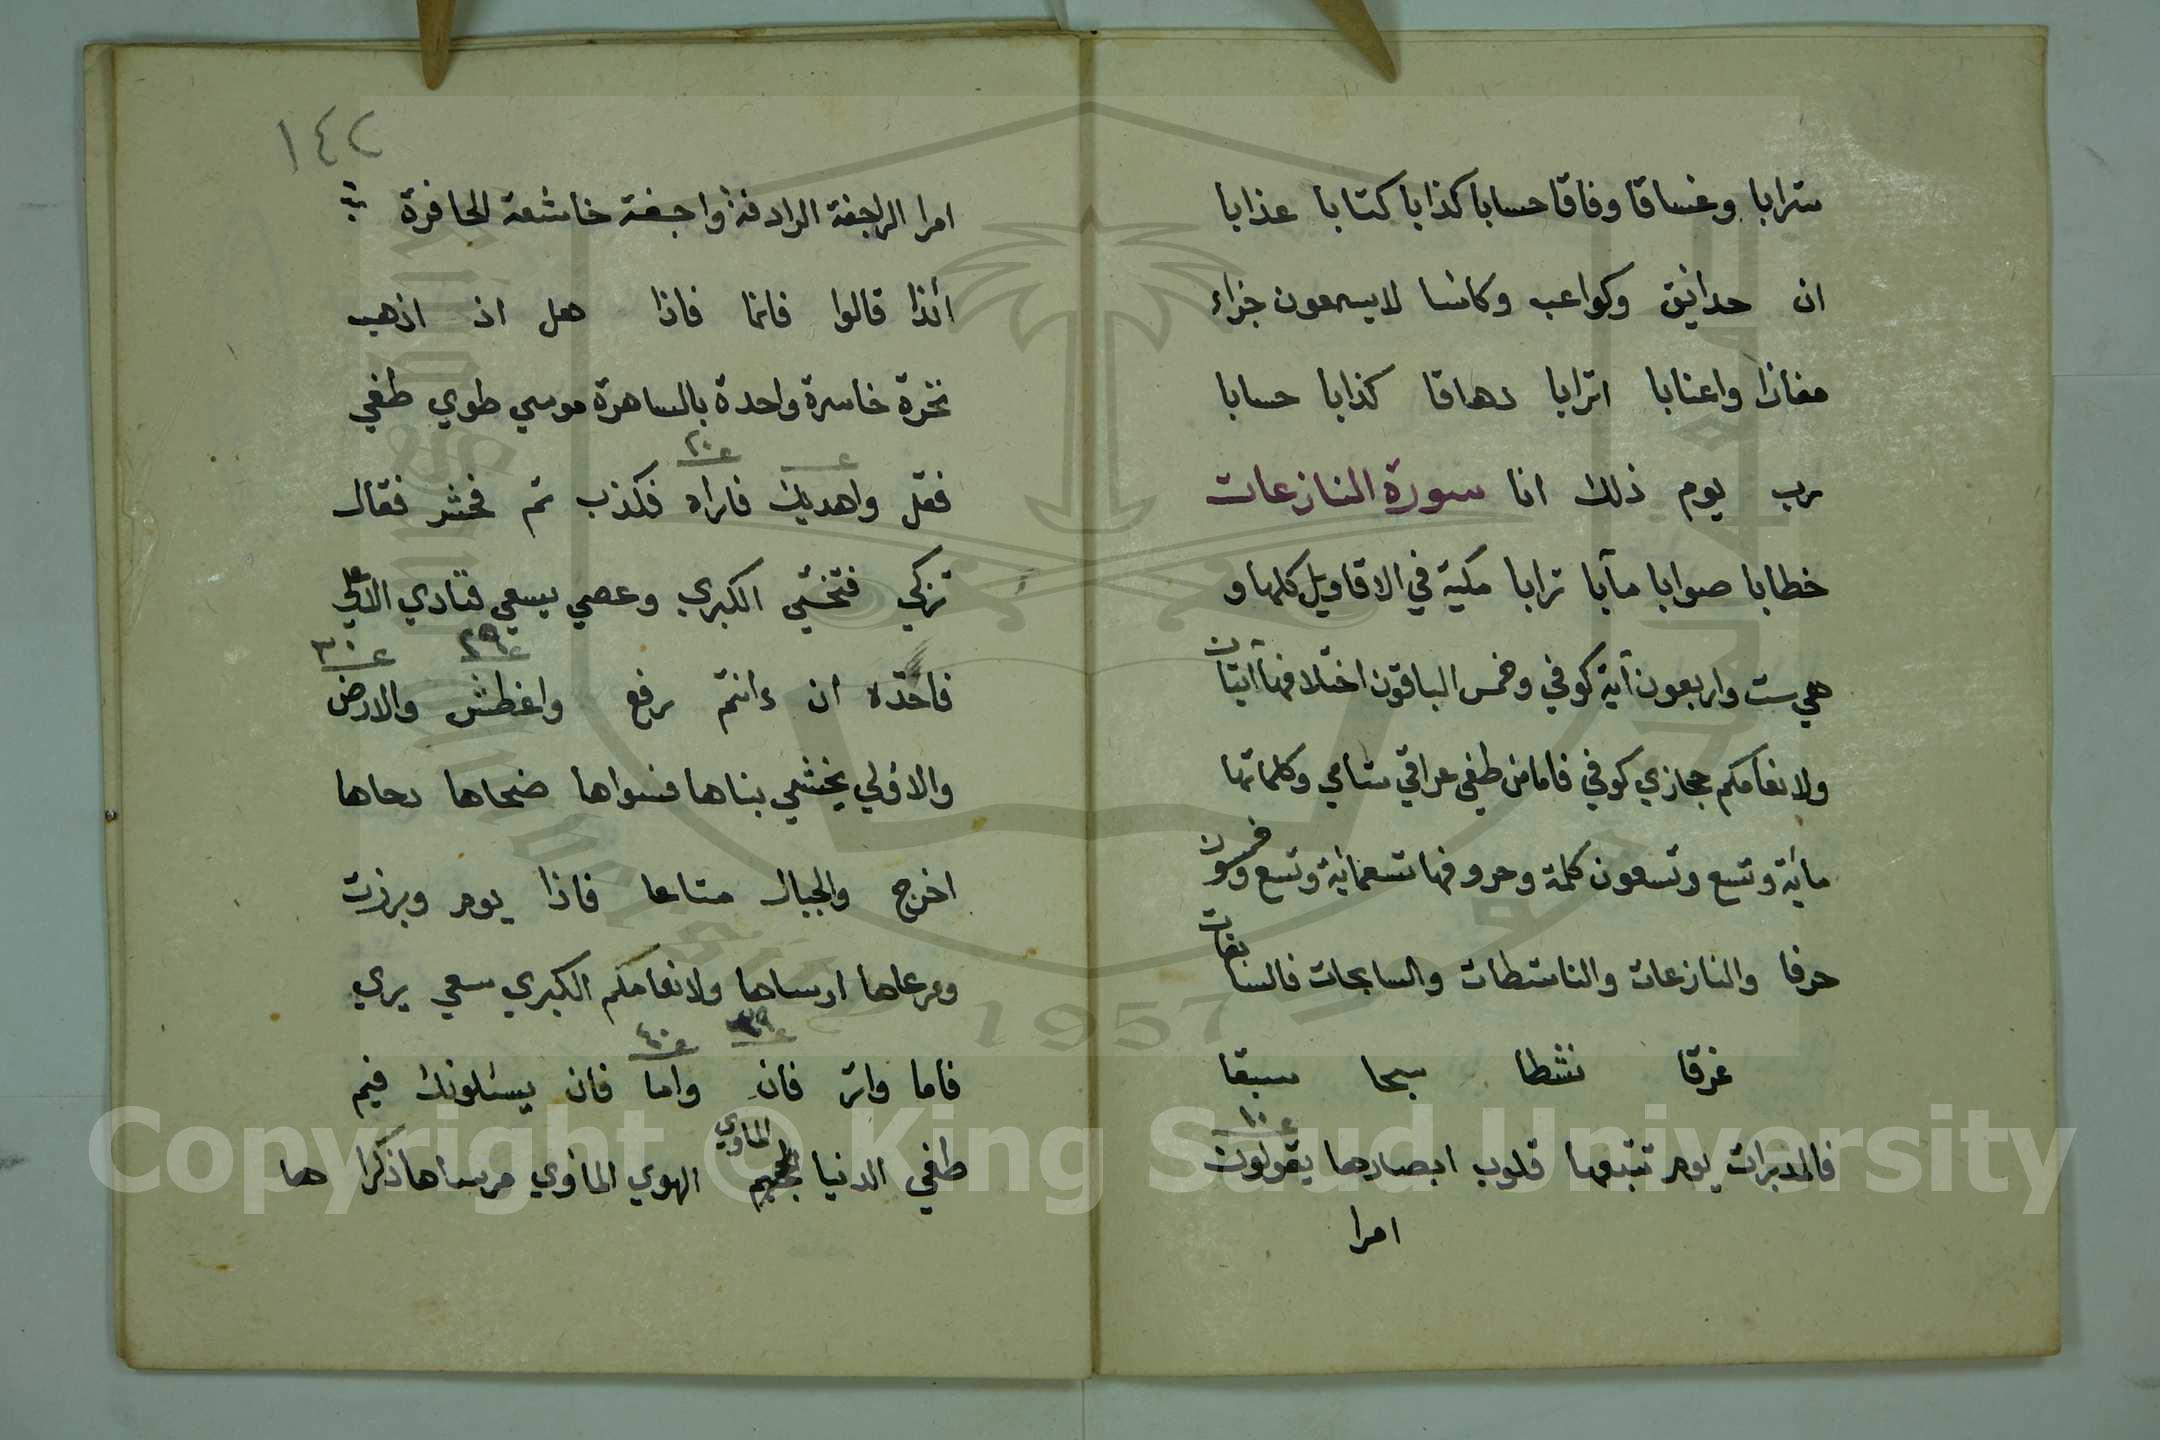 شرابا وغساقا وفاقا حسابا كذابا كتابا عذابا
ان حدايق وكواعب وكاسا لايسمعون جزاء
مفازا واعنابا اترابا دهاقا كذابا حسابا
رب يوم ذلك انا سورة النازعات
خطابا صوابا مآبا ترابا مكية في الاقاويل كلها و
هي ست واربعون آية كوفي وخمس الباقون اختلافها آيتان
ولانعامكم حجازي كوفي فاما من طغي عراقي شامي وكلماتها
ماية وتسع وتسعون كلمة وحروفها تسعماية وتسع وخمسون
حرفا والنازعات والناشطات والسابحات فالسابقات
غرقا نشطا سبحا سبقا
ع ١٠
فالمدبرات يوم تتبعها قلوب ابصارها يقولون
امرا
١٤٢
امرا الراجفة الرادفة واجفة خاشعة الحافرة
أئذا قالوا فانما فاذا هل اذ اذهب
نخرة خاسرة واحدة بالساهرة موسي طوي طغي
ع ٢٠
فقل واهديك فاراه فكذب ثم فحشر فقال
تزكي فتخشي الكبري وعصي يسعي فنادي الاعلي
ع ٢٩ ع ٣٠
فاخذه ان ءانتم رفع واغطش والارض
والاولي يخشي بناها فسواها ضحاها دحاها
اخرج والجبال متاعا فاذا يوم وبرزت
ومرعاها ارساها ولانعامكم الكبري سعي يري
ع ٣٩ ع ٤٠
فاما واثر فان واما فان يسئلونك فيم
طغي الدنيا الجحيم الماوي الهوي الماوي مرساها ذكراها
Copyright © King Saud University
1957